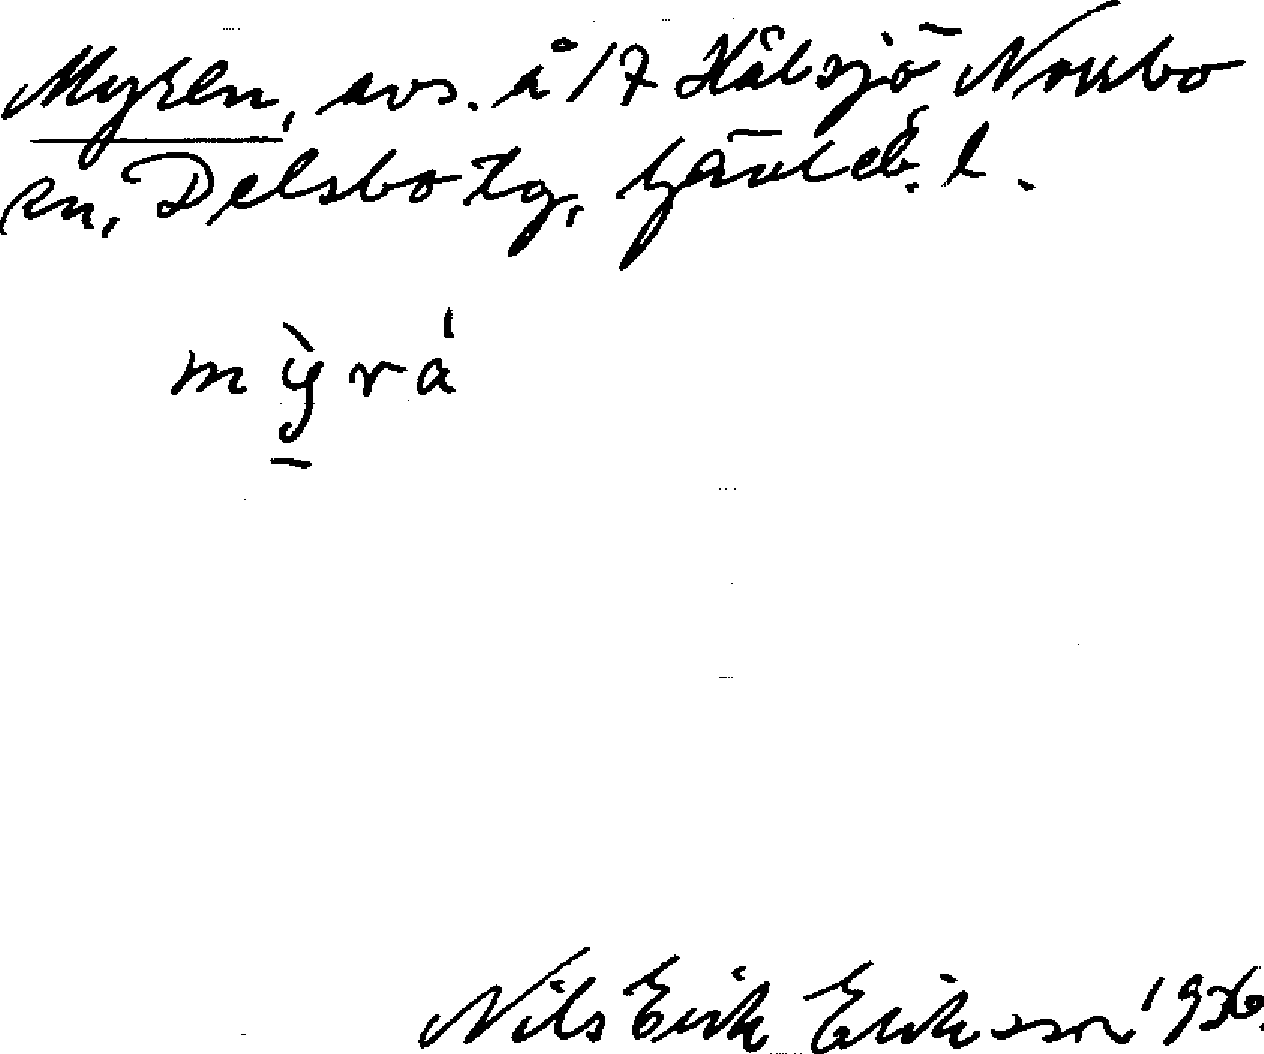 Myren, avs. å 17 Hålsjö Norrbo
sn, Delsbo tg, Gävleb. l.
mỳrá
Nils Erik Eriksson 1936.